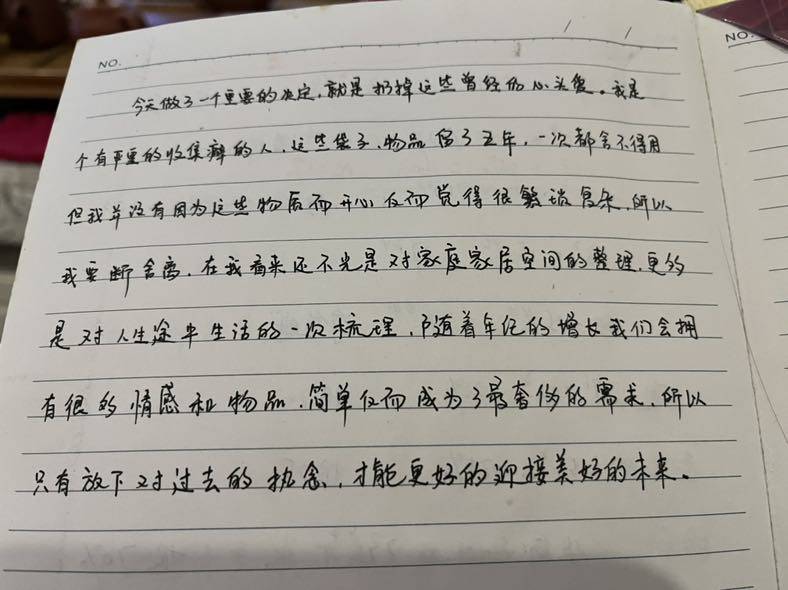 NO.
NO.
今天做了一个重要的决定,就是扔掉这些曾经的心头爱。我是
个有严重的收集癖的人,这些袋子、物品留了五年,一次都舍不得用
但我并没有因为这些物质而开心反而觉得很繁琐复杂,所以
我要断舍离,在我看来还不光是对家庭家居空间的整理,更多
是对人生途中生活的一次梳理,随着年纪的增长我们会拥
有很多情感和物品,简单反而成为了最奢侈的需求,所以
只有放下对过去的执念,才能更好的迎接美好的未来。